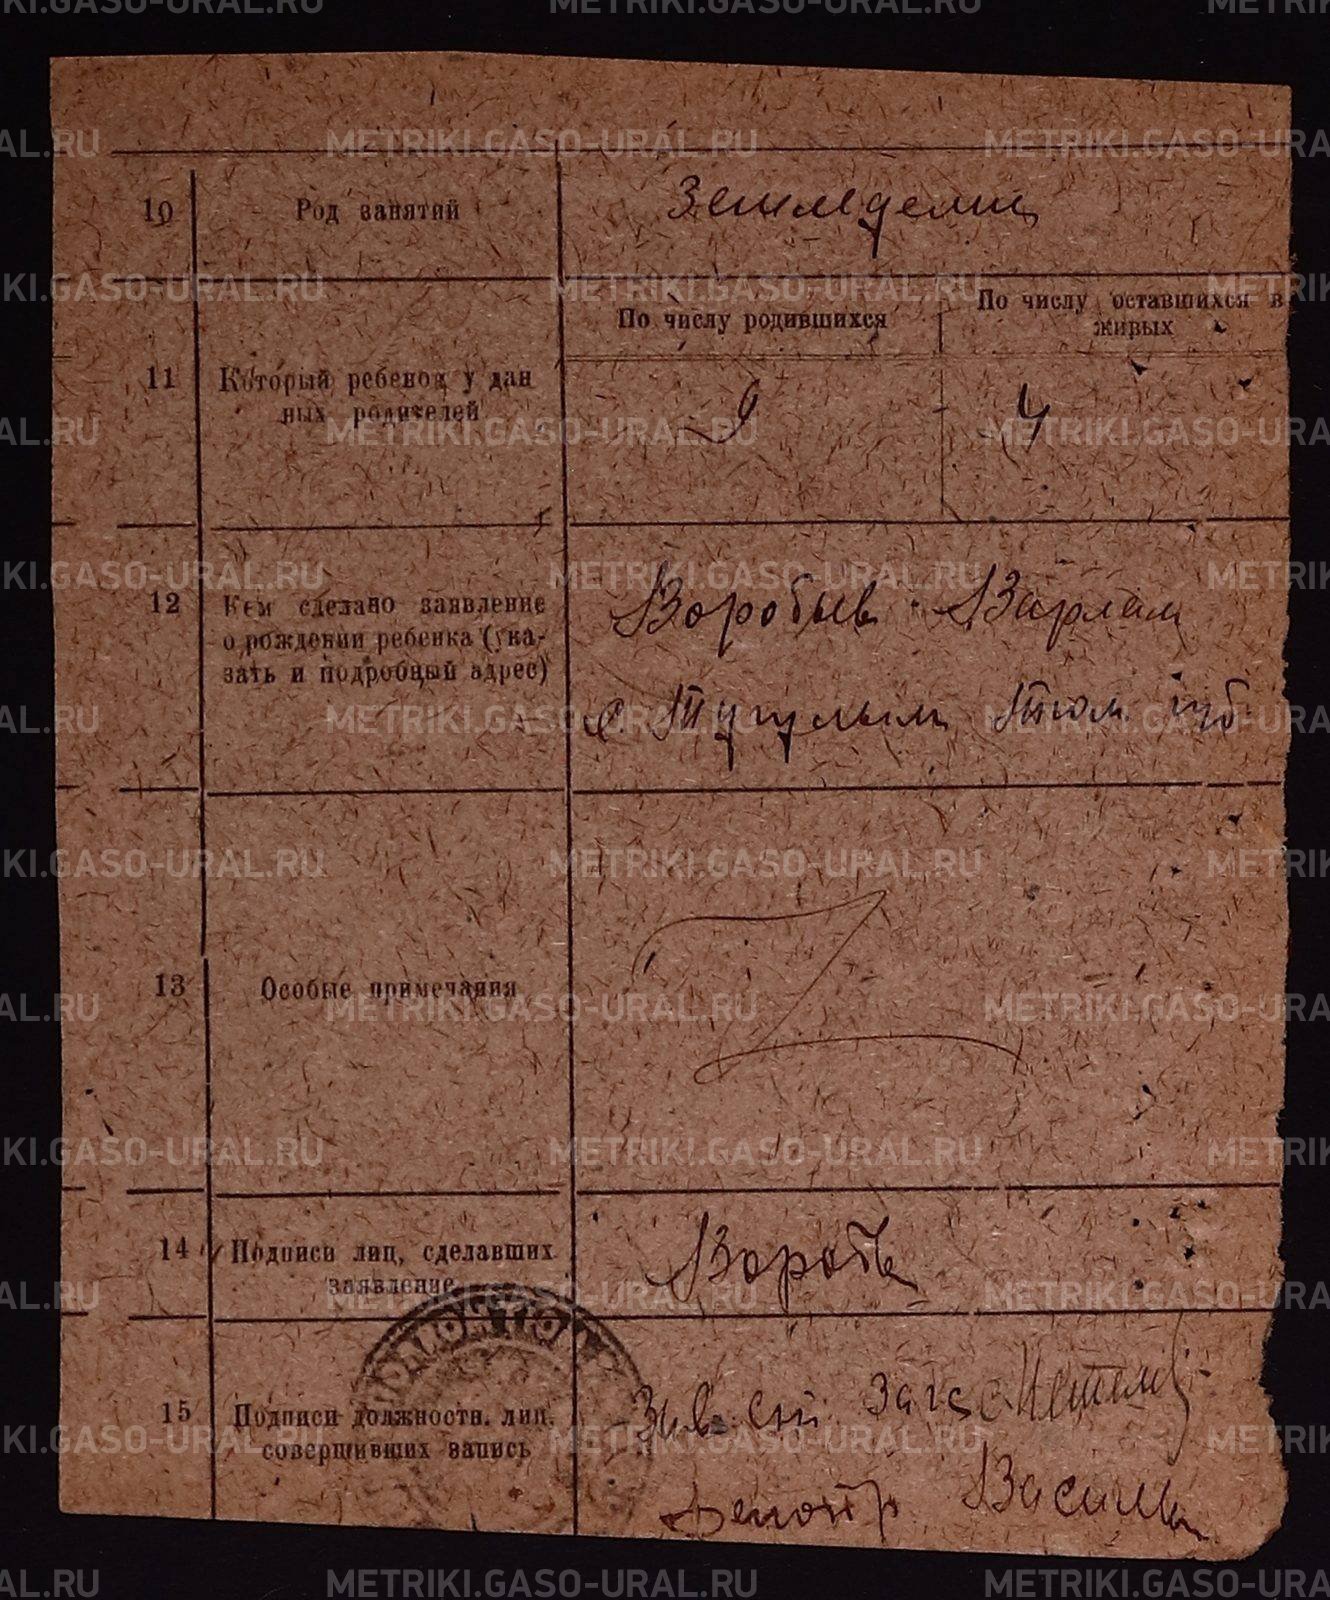 10 Род занятий Земледелец
По числу родившихся По числу оставшихся в живых
11 Который ребенок у дан
ных родителей 9 4
12 Кем сделано заявление
о рождении ребенка (ука-
зать и подробный адрес)
Воробьев Варлам
с. Тугулым Тюм. губ.
13 Особые примечания
14 Подписи лиц, сделавших
заявление Вороб
15 Подписи должностн. лиц,
совершивших запись
Зав. загс
Делопр Васильев
METRIKI.GASO-URAL.RU